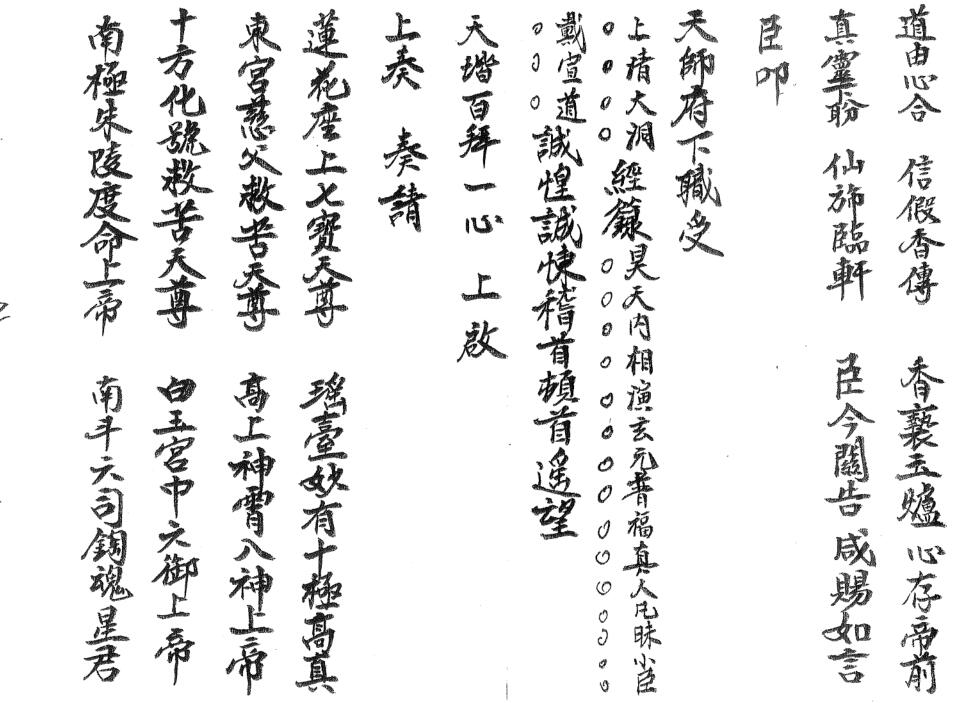 道由心合　信假香傳　香爇玉爐心存帝前
真靈盼　仙旆臨軒　臣今關告咸賜如言
臣叩
天師府下職受
上清大洞經籙昊天內相演玄元普福真人凡昧小臣
戴宣道誠惶誠悚稽首頓首遥望
天堦百拜一心　上啟
上奏　奏請
蓮花座上七寶天尊　瑶臺妙有十極高真
東宮慈父救苦天尊　高上神霄八神上帝
十方化號救苦天尊　白玉宮中六御上帝
南極朱陵度命上帝　南斗六司鍧魂星君